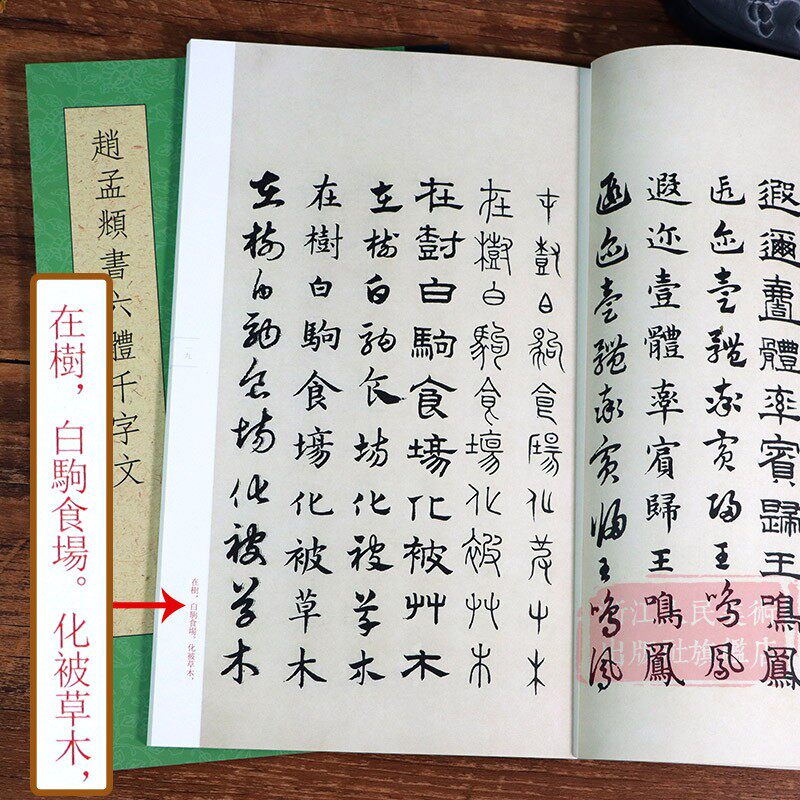 趙孟頫書六體千字文
在樹，白駒食場。化被草木，
遐邇壹體率賓歸王鳴鳳
遐迩壹體率賓歸王鳴鳳
遐迩壹體率賓歸王鳴鳳
遐迩壹體率賓歸王鳴鳳
在樹白駒食場化被草木
在樹白駒食場化被草木
在樹白駒食場化被草木
在樹白駒食場化被草木
在樹白駒食場化被草木
在樹白駒食場化被草木
九
在樹，白駒食場。化被草木，
浙江人民美術
出版社旗艦店